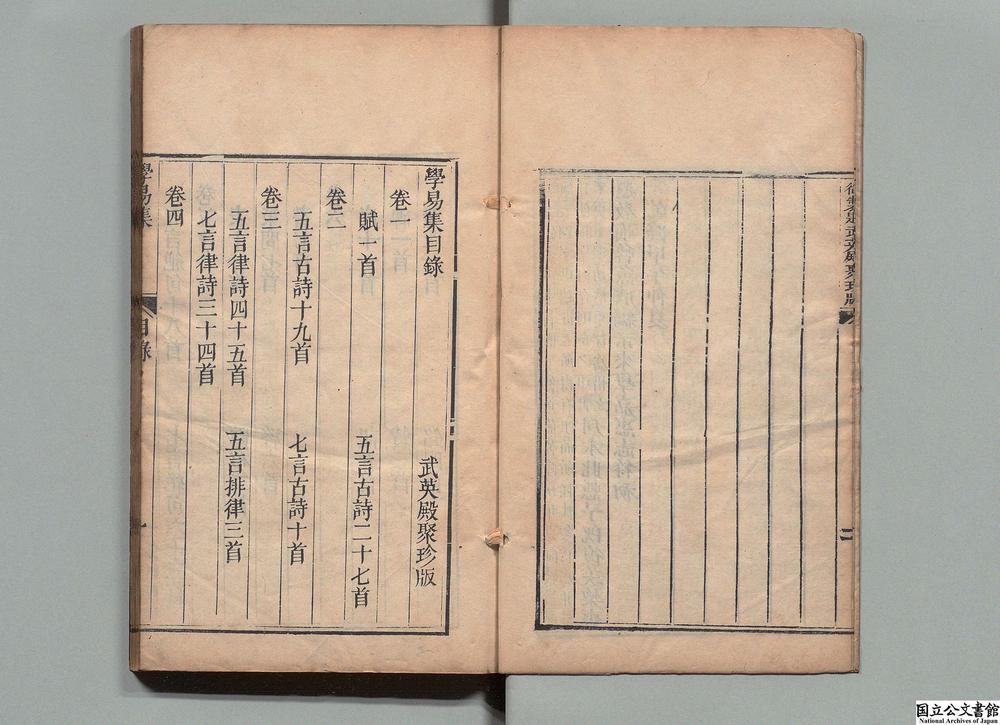 御製題武英殿聚珍版
二
學易集目錄
武英殿聚珍版
卷一
賦一首
五言古詩二十七首
卷二
五言古詩十九首
七言古詩十首
卷三
五言律詩四十五首
五言排律三首
七言律詩三十四首
卷四
學易集
目錄
一
国立公文書館
National Archives of Japan